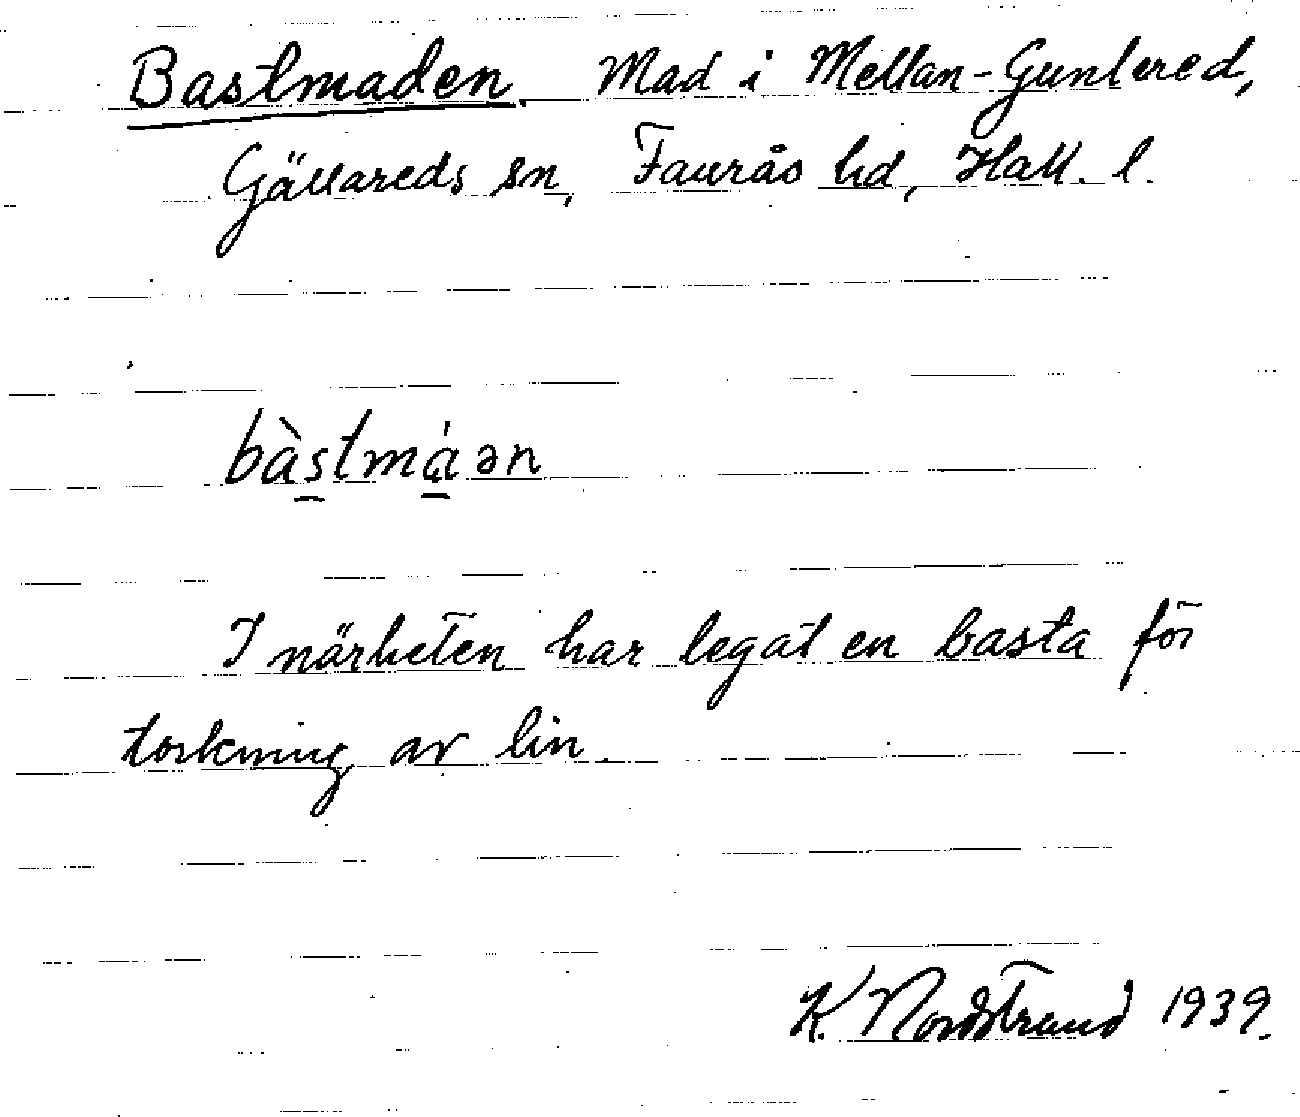 Bastmaden. Mad i Mellan-Guntered,
Gällareds sn, Faurås hd, Hall. l.
bàstmáən
I närheten har legat en basta för
torkning av lin.
K. Nordstrand 1939.